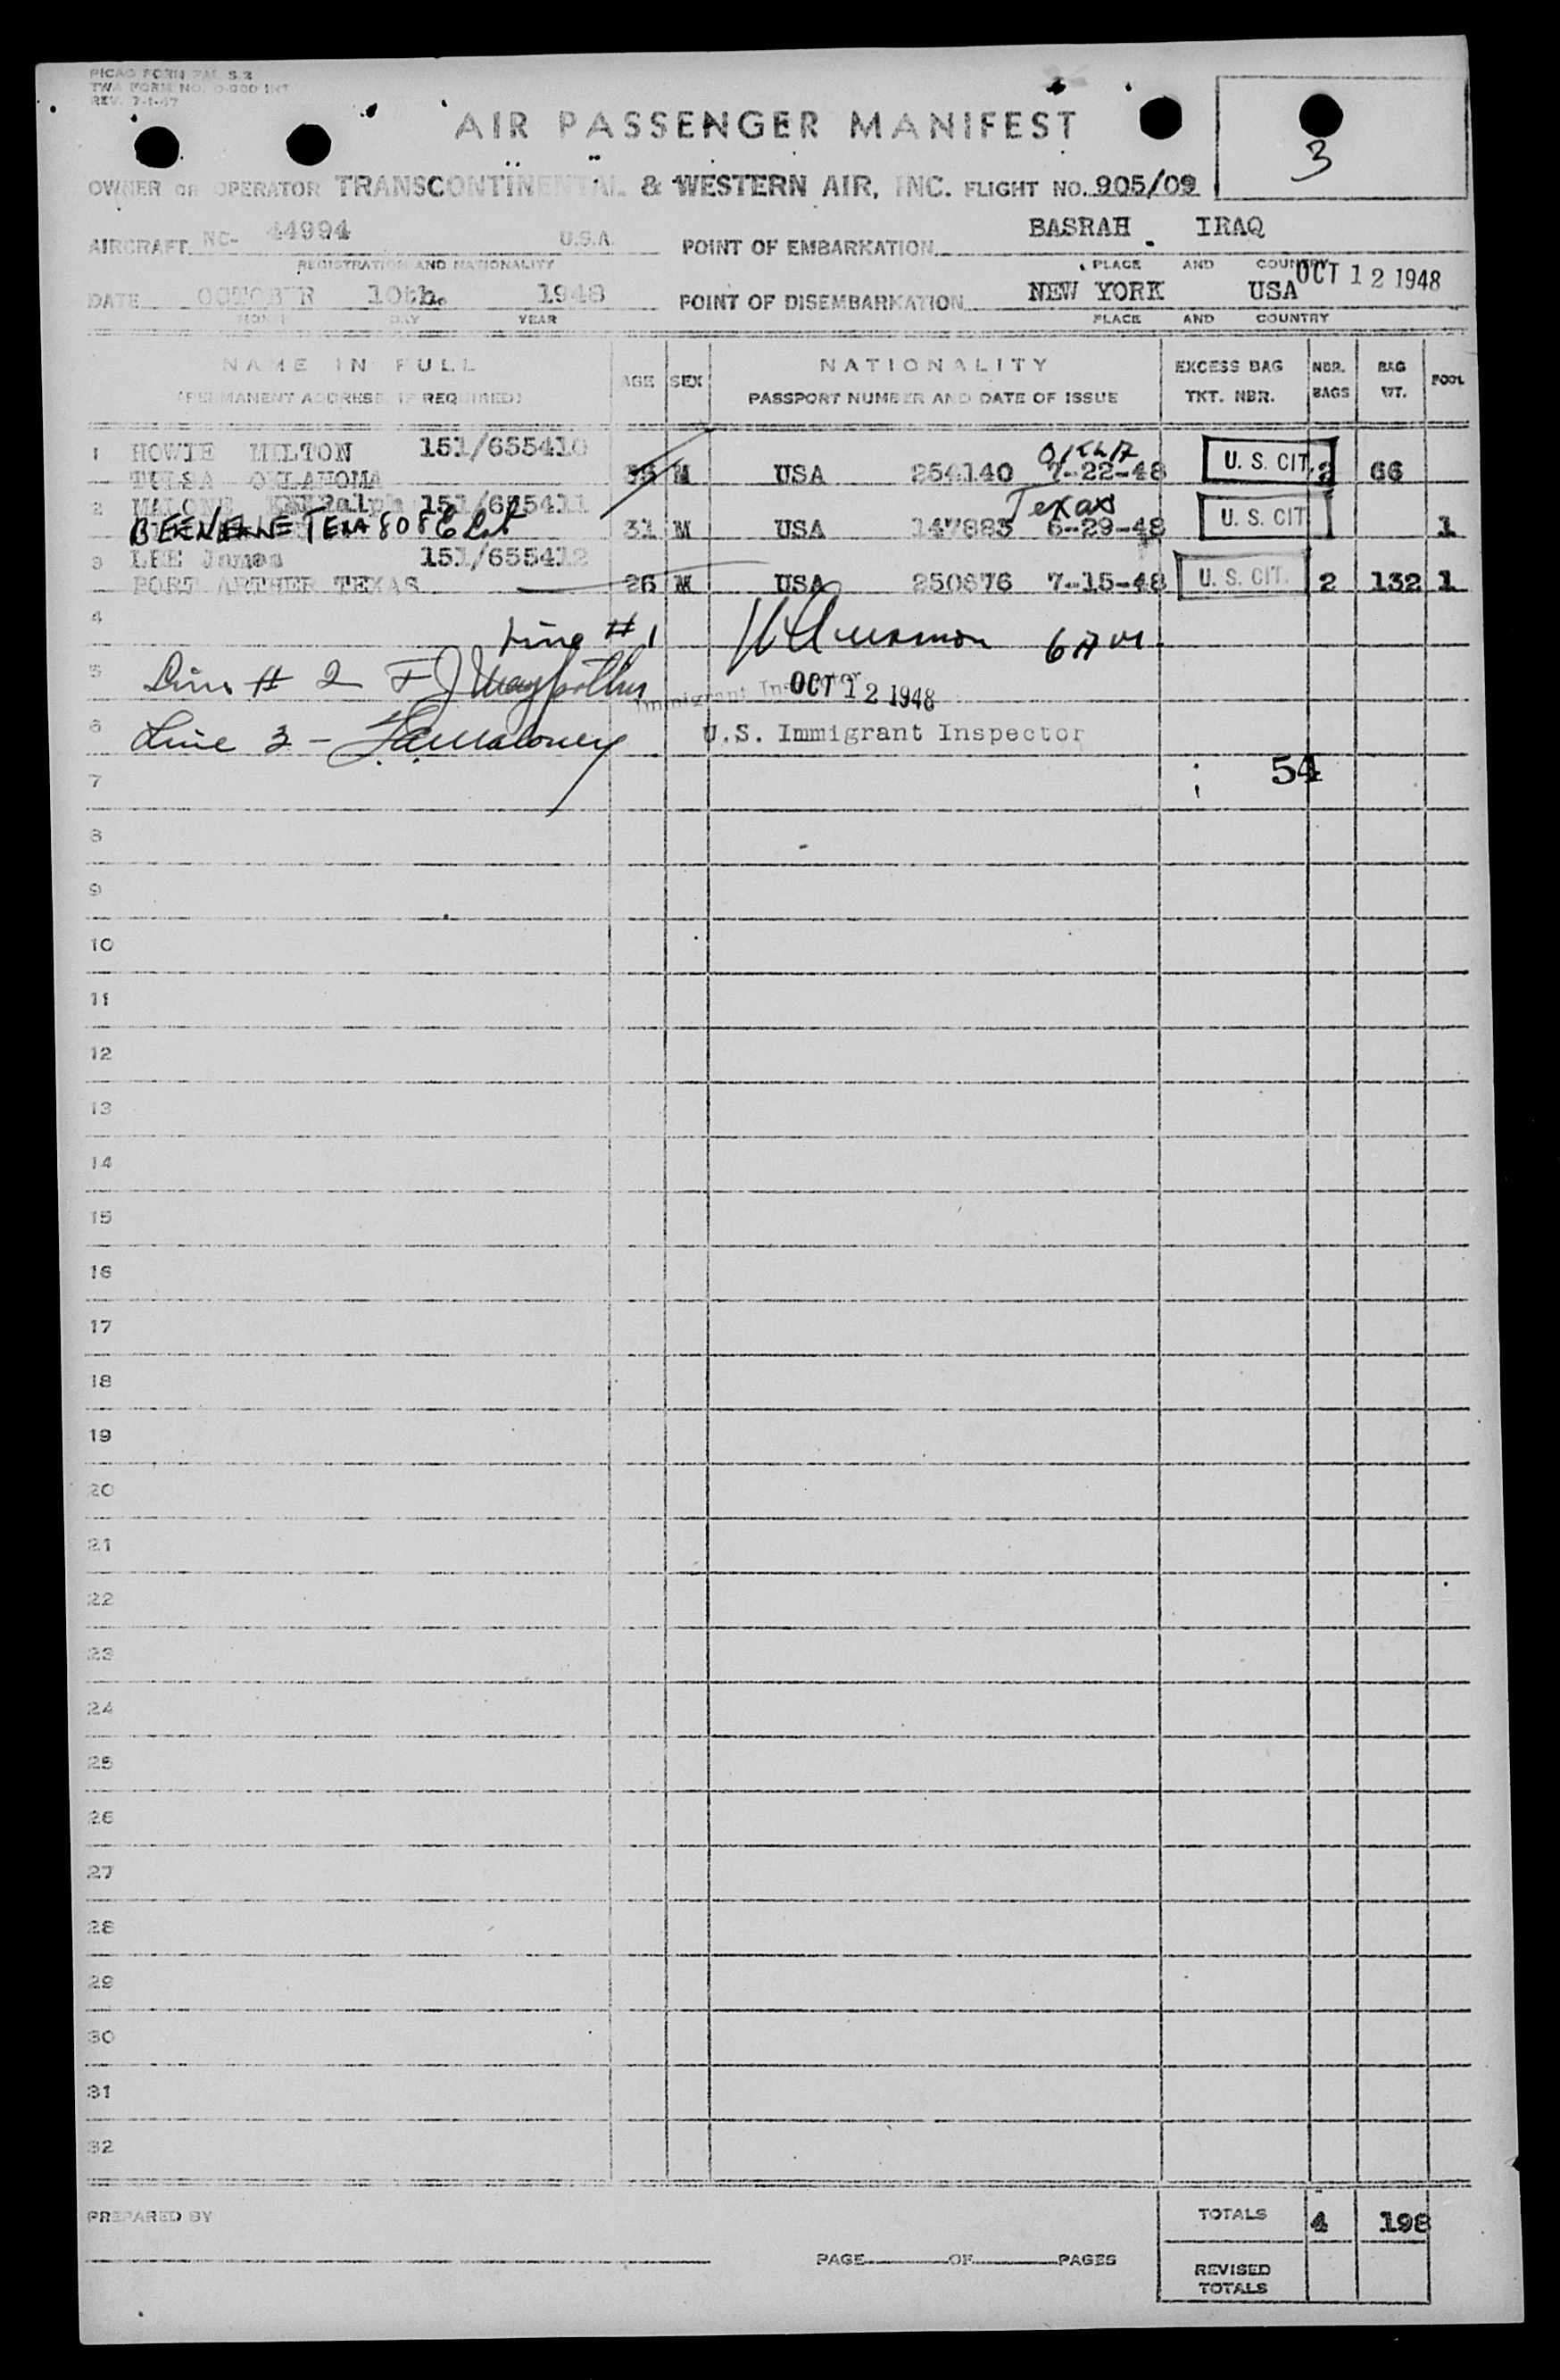 PICAO FORM PAL S.2
TWA FORM NO. 0-900 INT
REV. 7-1-47
AIR PASSENGER MANIFEST
3
OWNER OR OPERATOR TRANSCONTINENTAL & WESTERN AIR, INC. FLIGHT NO. 905/09
AIRCRAFT NC- 44994 U.S.A. POINT OF EMBARKATION BASRAH IRAQ
REGISTRATION AND NATIONALITY PLACE AND COUNTRY
DATE OCTOBER 10th. 1948 POINT OF DISEMBARKATION NEW YORK USA OCT 12 1948
MONTH DAY YEAR PLACE AND COUNTRY
NAME IN FULL AGE SEX NATIONALITY EXCESS BAG NBR. BAG POOL
(PERMANENT ADDRESS, IF REQUIRED) PASSPORT NUMBER AND DATE OF ISSUE TKT. NBR. BAGS WT.
1 HOWIE MILTON 151/655410 Okla
TULSA OKLAHOMA M USA 254140 7-22-48 U. S. CIT. 2 66
2 MALONE Ralph 151/655411 Texas
TEXA 808 31 M USA 147883 6-29-48 U. S. CIT 1
3 LEE James 151/655412
PORT ARTHER TEXAS 26 M USA 250876 7-15-48 U. S. CIT. 2 132 1
4 Line # 1
5 Line # 2 Immigrant Inspector OCT 12 1948
6 Line 3 - U.S. Immigrant Inspector
7 54
8
9
10
11
12
13
14
15
16
17
18
19
20
21
22
23
24
25
26
27
28
29
30
31
32
PREPARED BY TOTALS 4 198
PAGE OF PAGES REVISED
TOTALS